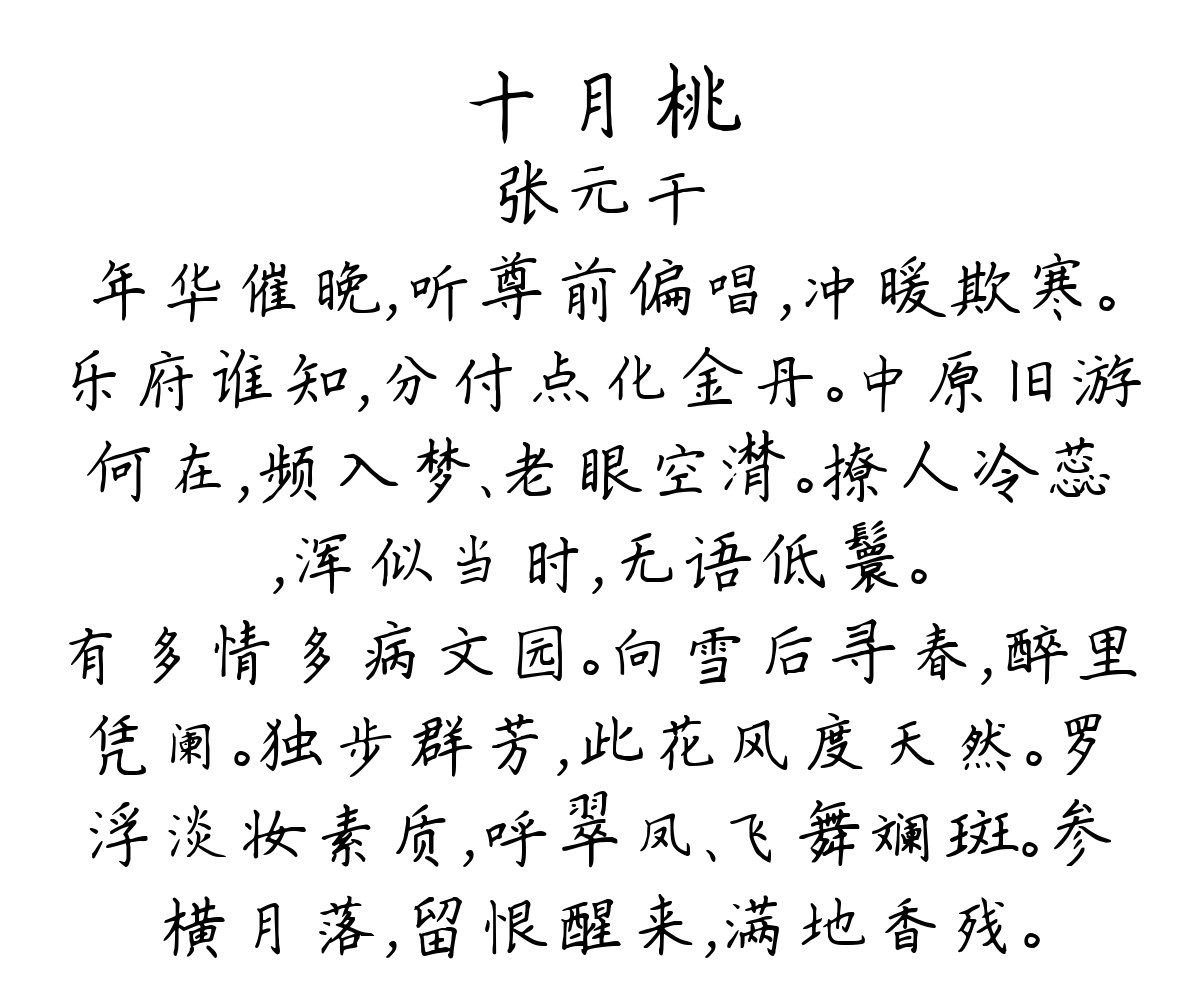 十月桃
张元干
年华催晚,听尊前偏唱,冲暖欺寒。
乐府谁知,分付点化金丹。中原旧游
何在,频入梦、老眼空潸。撩人冷蕊
,浑似当时,无语低鬟。
有多情多病文园。向雪后寻春,醉里
凭阑。独步群芳,此花风度天然。罗
浮淡妆素质,呼翠凤、飞舞斓斑。参
横月落,留恨醒来,满地香残。